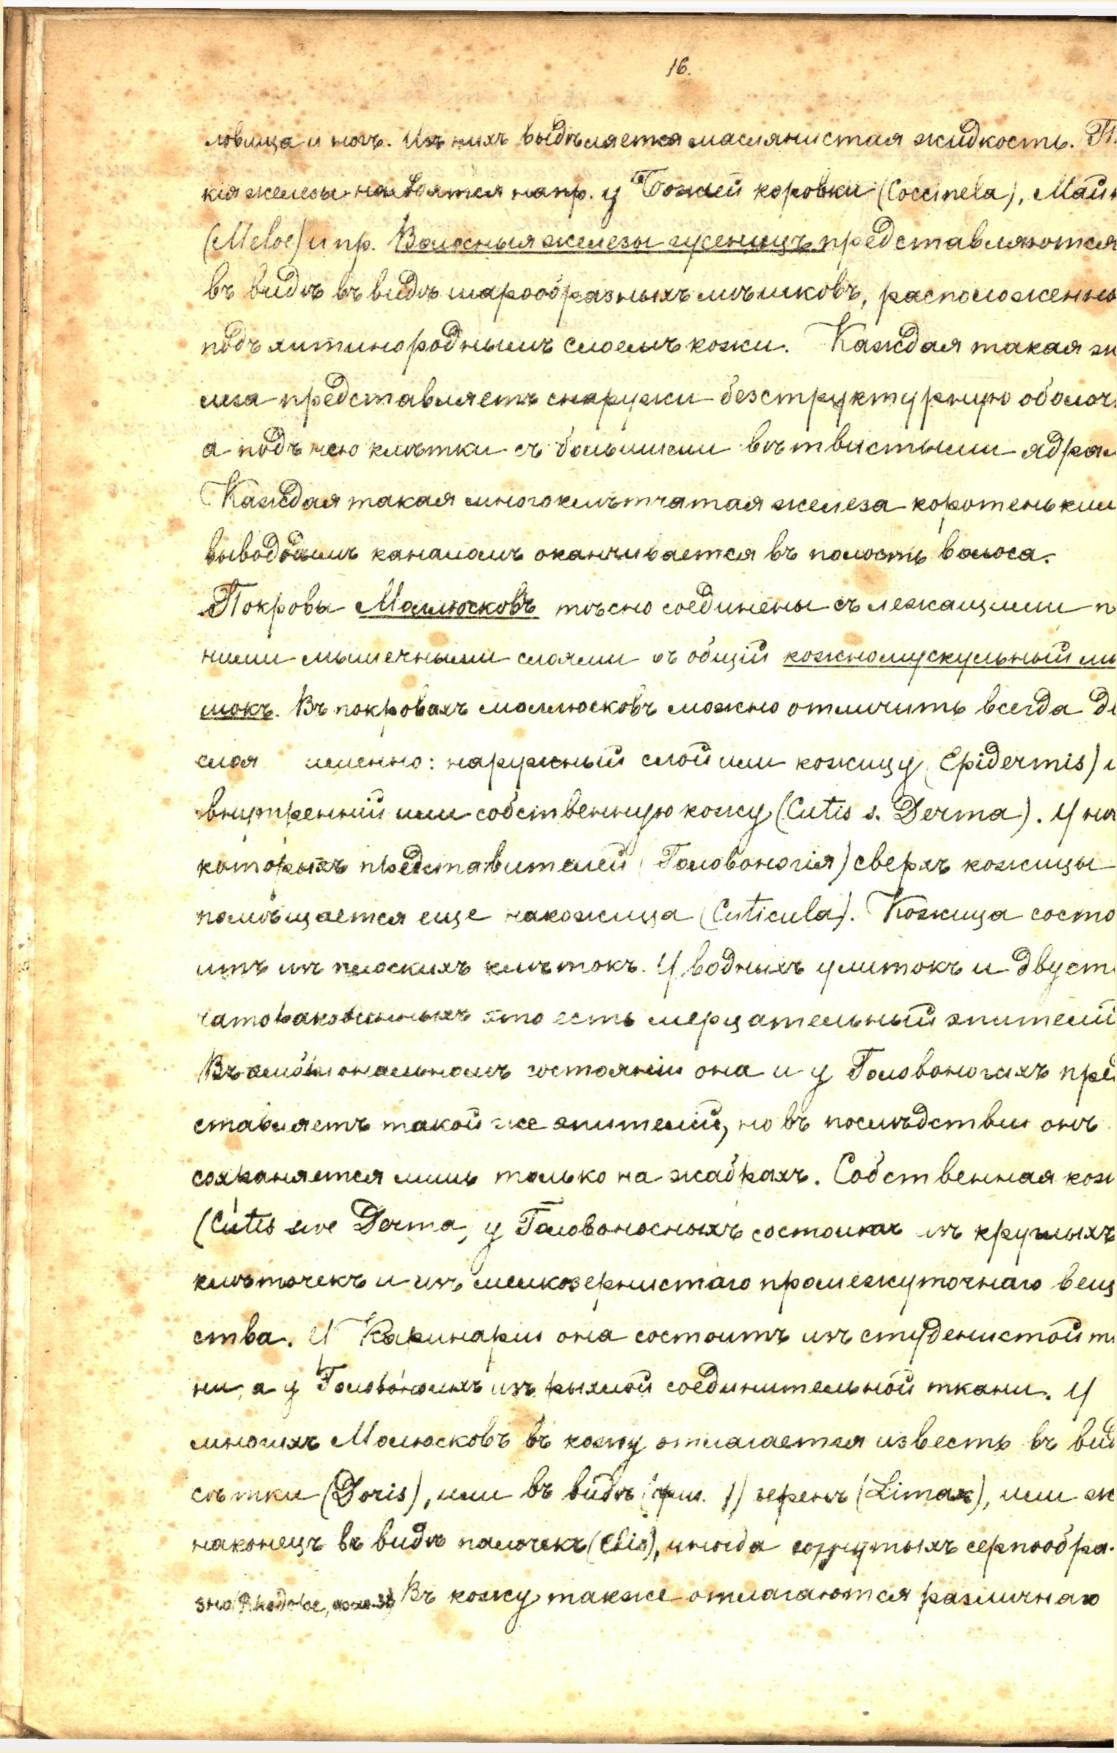 16.
ловища и ногъ. Изъ нихъ выдѣляется маслянистая жидкость. Т
кія железы находятся напр. у Божьей коровки (Coccinela), Май
(Meloe) и пр. Волосныя железы гусеницъ представляются
въ видѣ въ видѣ шарообразныхъ мѣшковъ, расположенны
подъ хитинороднымъ слоемъ кожи. Каждая такая же
леза представляетъ снаружи безструктурную оболоч
а подъ нею клѣтки съ большими вѣтвистыми ядра
Каждая такая многоклѣтчатая железа коротеньким
выводнымъ каналомъ оканчивается въ полость волоса.
Покровы Моллюсковъ тѣсно соединены съ лежащими п
ними мышечными слоями въ общій кожномускульный мѣ
шокъ. Въ покровахъ моллюсковъ можно отличить всегда дв
слоя именно: наружный слой или кожицу (Epidermis) и
внутренній или собственную кожу (Cutis s. Derma). У нѣ
которыхъ представителей (Головоногія) сверхъ кожицы
помѣщается еще накожица (Cuticula). Кожица состо
итъ изъ плоскихъ клѣтокъ. У водныхъ улитокъ и двуст
чатораковинныхъ это есть мерцательный эпителій
Въ эмбріональномъ состояніи она и у Головоногихъ пред
ставляетъ такой же эпителій, но въ послѣдствіи онъ
сохраняется лишь только на жабрахъ. Собственная кож
(Cutis sive Derma, у Головоносныхъ состоитъ изъ круглыхъ
клѣточекъ и изъ мелкозернистаго промежуточнаго вещ
ства. У Каринаріи она состоитъ изъ студенистой т
ни, а у Головоногихъ изъ рыхлой соединительной ткани. У
многихъ Молюсковъ въ кожу отлагается известь въ вид
сѣтки (Doris), или въ видѣ зеренъ (Limax), или ж
наконецъ въ видѣ палочекъ, иногда согнутыхъ серпообра-
зно Въ кожу также отлагаются различнаго